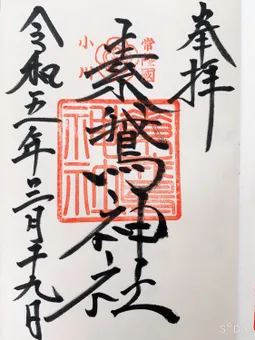 奉拝
常陸國
小川
素鵞神社
素鵞神社
令和五年三月二十九日